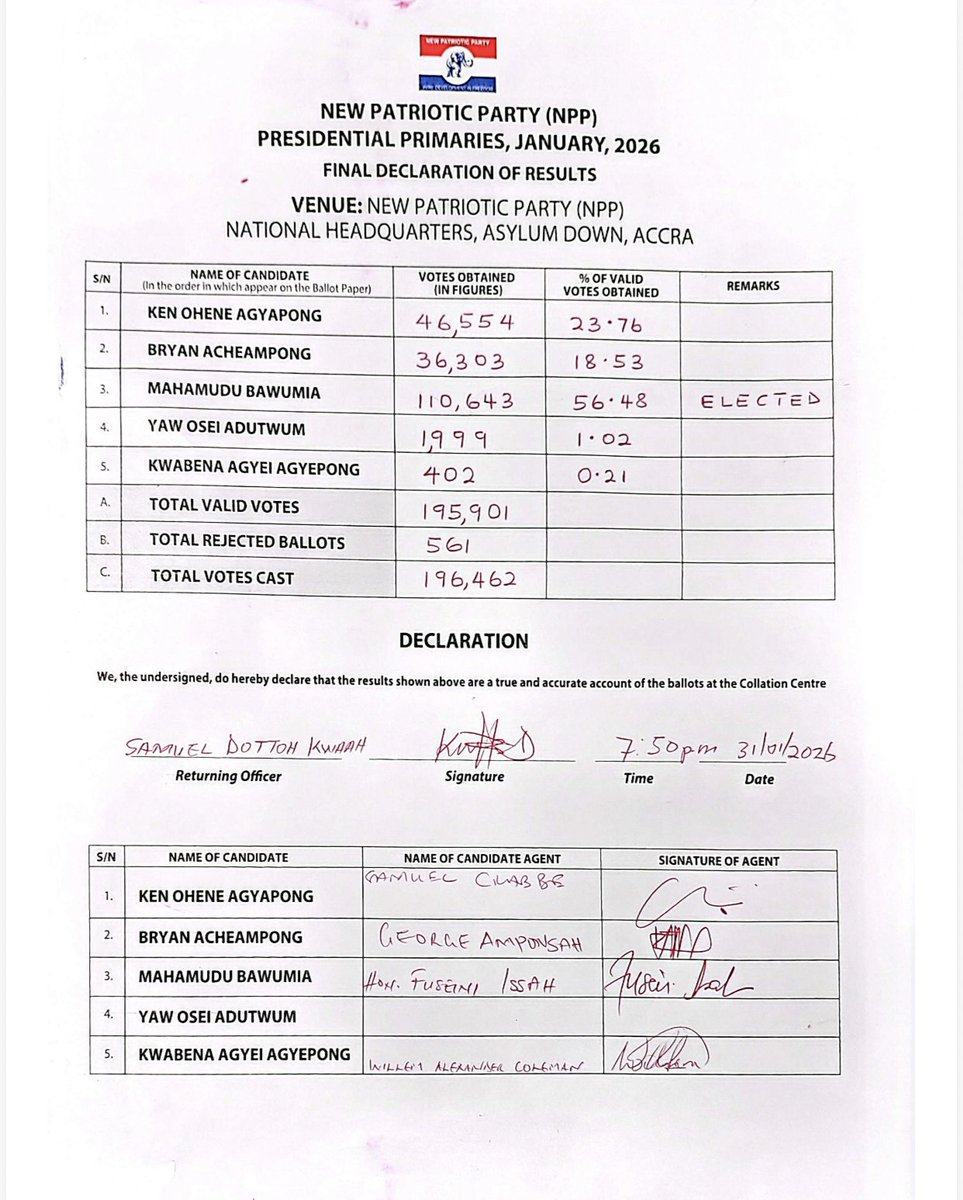 NEW PATRIOTIC PARTY
NEW PATRIOTIC PARTY (NPP)
PRESIDENTIAL PRIMARIES, JANUARY, 2026
FINAL DECLARATION OF RESULTS
VENUE: NEW PATRIOTIC PARTY (NPP)
NATIONAL HEADQUARTERS, ASYLUM DOWN, ACCRA
S/N NAME OF CANDIDATE (In the order in which appear on the Ballot Paper) VOTES OBTAINED (IN FIGURES) % OF VALID VOTES OBTAINED REMARKS
1. KEN OHENE AGYAPONG 46,554 23.76
2. BRYAN ACHEAMPONG 36,303 18.53
3. MAHAMUDU BAWUMIA 110,643 56.48 ELECTED
4. YAW OSEI ADUTWUM 1,999 1.02
5. KWABENA AGYEI AGYEPONG 402 0.21
A. TOTAL VALID VOTES 195,901
B. TOTAL REJECTED BALLOTS 561
C. TOTAL VOTES CAST 196,462
DECLARATION
We, the undersigned, do hereby declare that the results shown above are a true and accurate account of the ballots at the Collation Centre
SAMUEL DOTTOH KWAAH 7:50pm 31/01/2026
Returning Officer Signature Time Date
S/N NAME OF CANDIDATE NAME OF CANDIDATE AGENT SIGNATURE OF AGENT
1. KEN OHENE AGYAPONG SAMUEL CRABBE
2. BRYAN ACHEAMPONG GEORGE AMPONSAH
3. MAHAMUDU BAWUMIA HON. FUSEINI ISSAH
4. YAW OSEI ADUTWUM
5. KWABENA AGYEI AGYEPONG WILLEM ALEXANDER COLEMAN